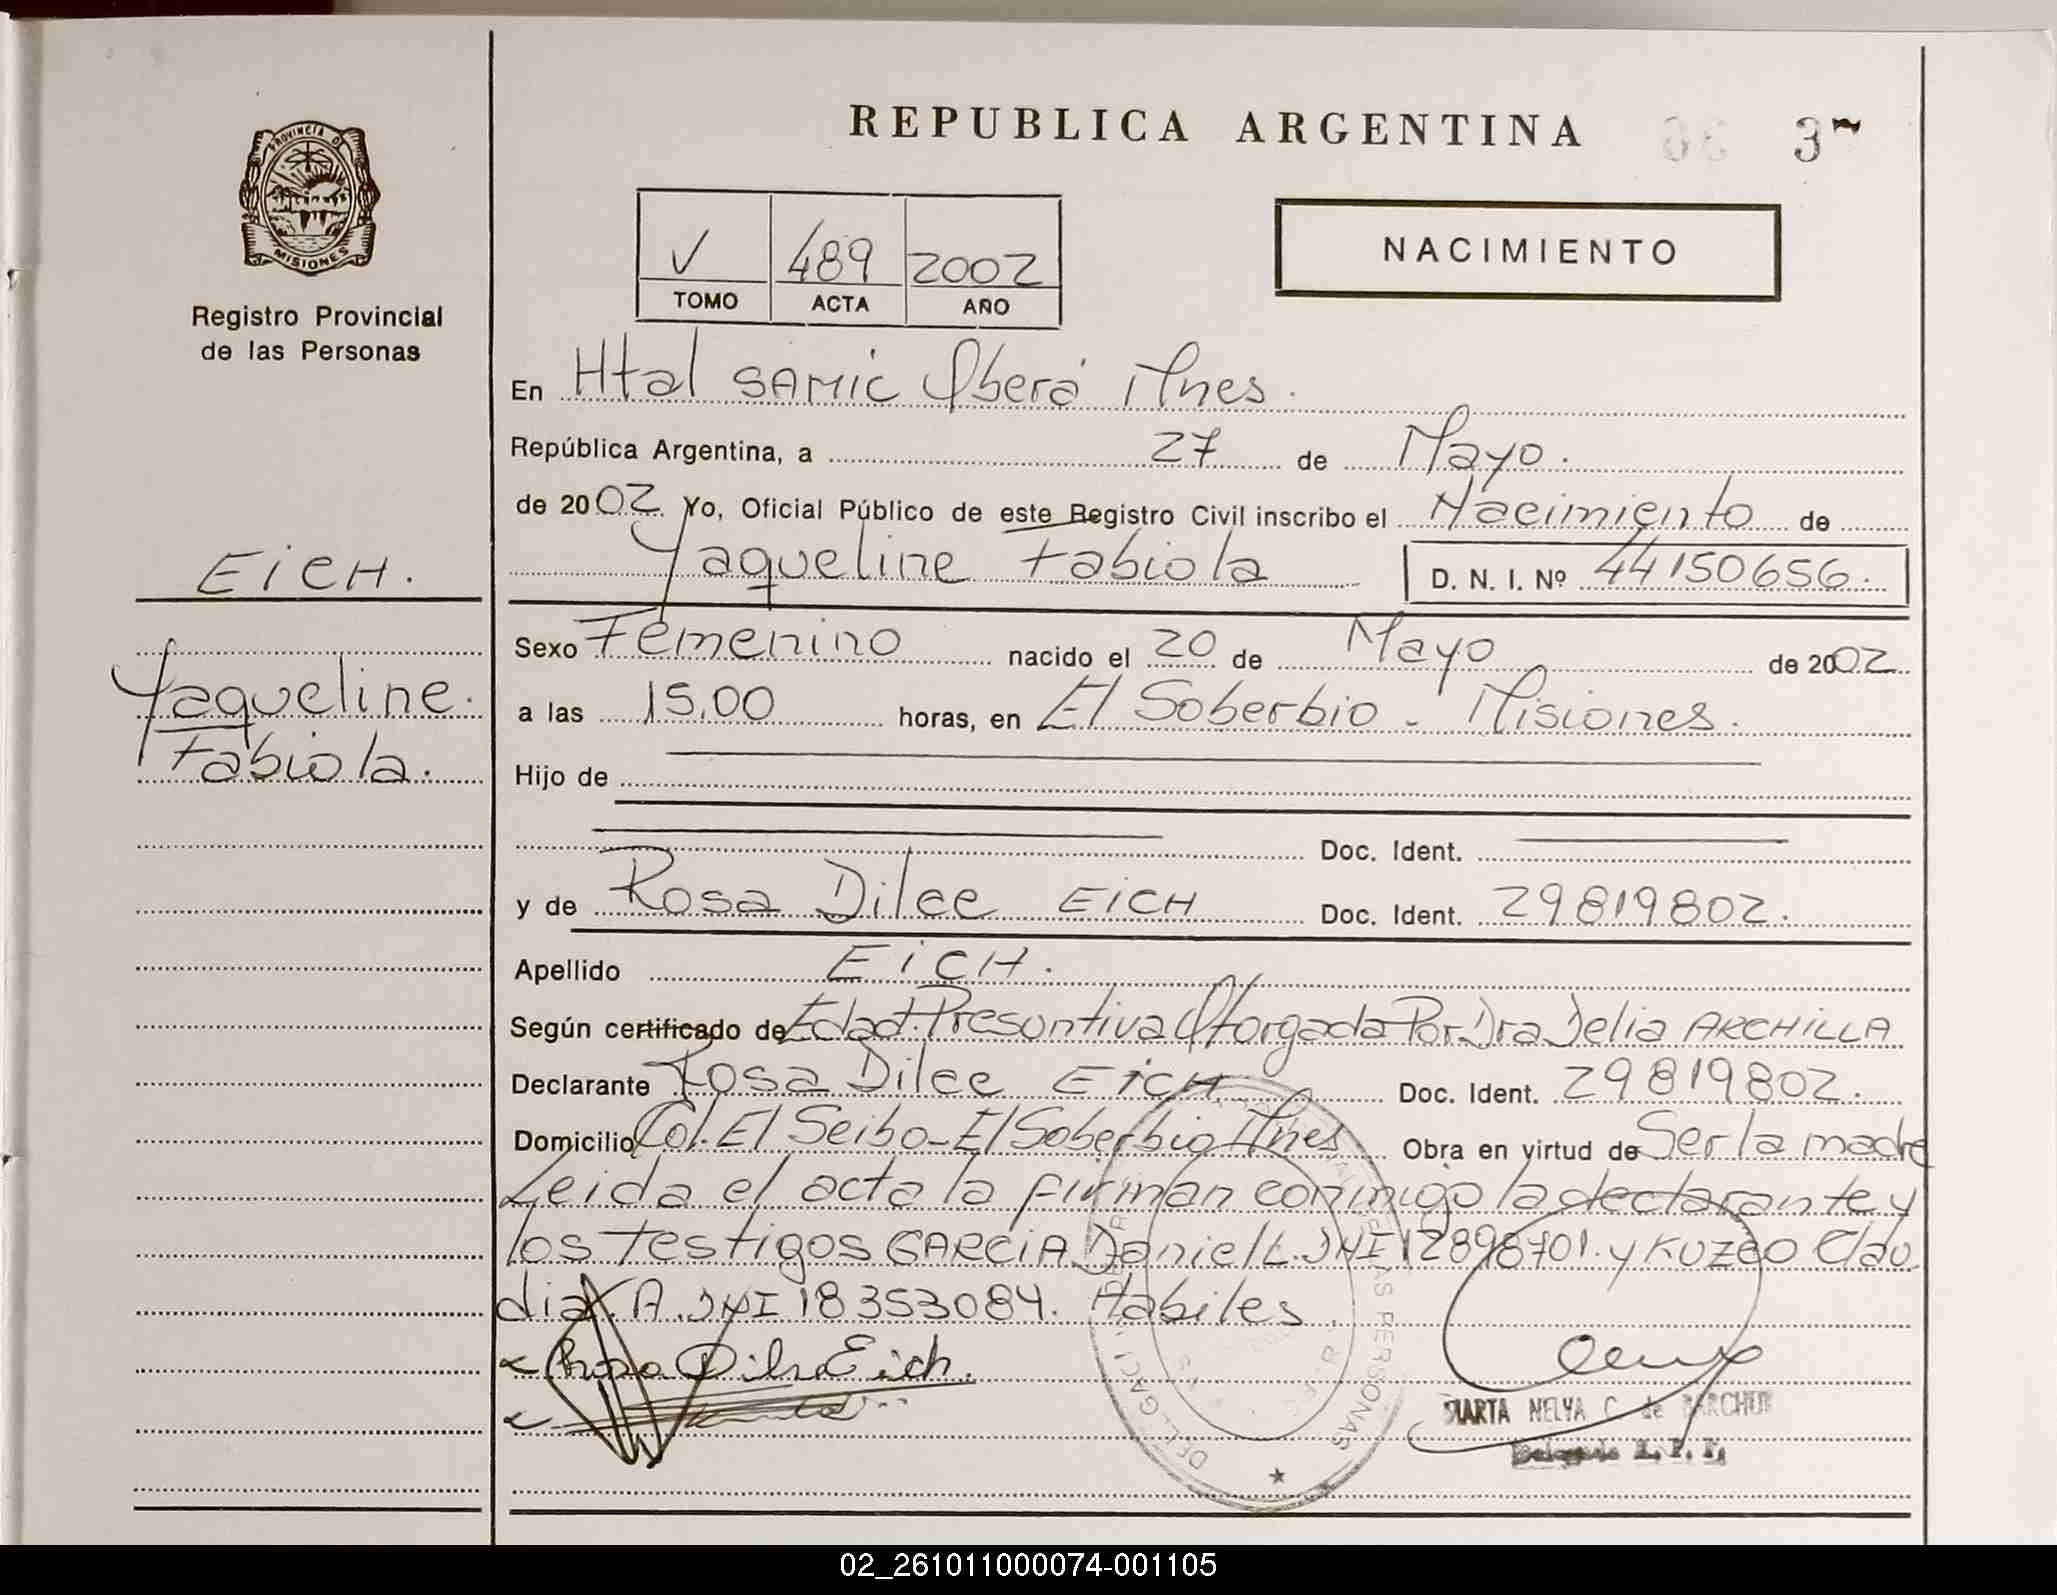 REPUBLICA ARGENTINA
3
PROVINCIA D
MISIONES
Registro Provincial
de las Personas
V 489 2002
TOMO ACTA AÑO
NACIMIENTO
En Htal SAMIC Oberá Mnes.
República Argentina, a 27 de Mayo.
de 2002 Yo, Oficial Público de este Registro Civil inscribo el Nacimiento de
Yaqueline Fabiola D. N. I. Nº 44150656.
EICH.
Yaqueline.
Fabiola.
Sexo Femenino nacido el 20 de Mayo de 2002
a las 15,00 horas, en El Soberbio - Misiones.
Hijo de
Doc. Ident.
y de Rosa Dilce EICH Doc. Ident. 29819802.
Apellido EICH.
Según certificado de Edad Presuntiva Otorgada Por Dra Delia ARCHILLA
Declarante Rosa Dilce EICH Doc. Ident. 29819802.
Domicilio Col. El Seibo - El Soberbio Mnes Obra en virtud de Ser la madre
Leida el acta la firman conmigo la declarante y
los testigos GARCIA Daniel L. DNI 12898701. y KUZCO Clau
dia A. DNI 18353084. Habiles.
Rosa Dilse Eich.
MARTA NELVA C. de
Delegada R. P. P.
AS PERSONAS
02_261011000074-001105